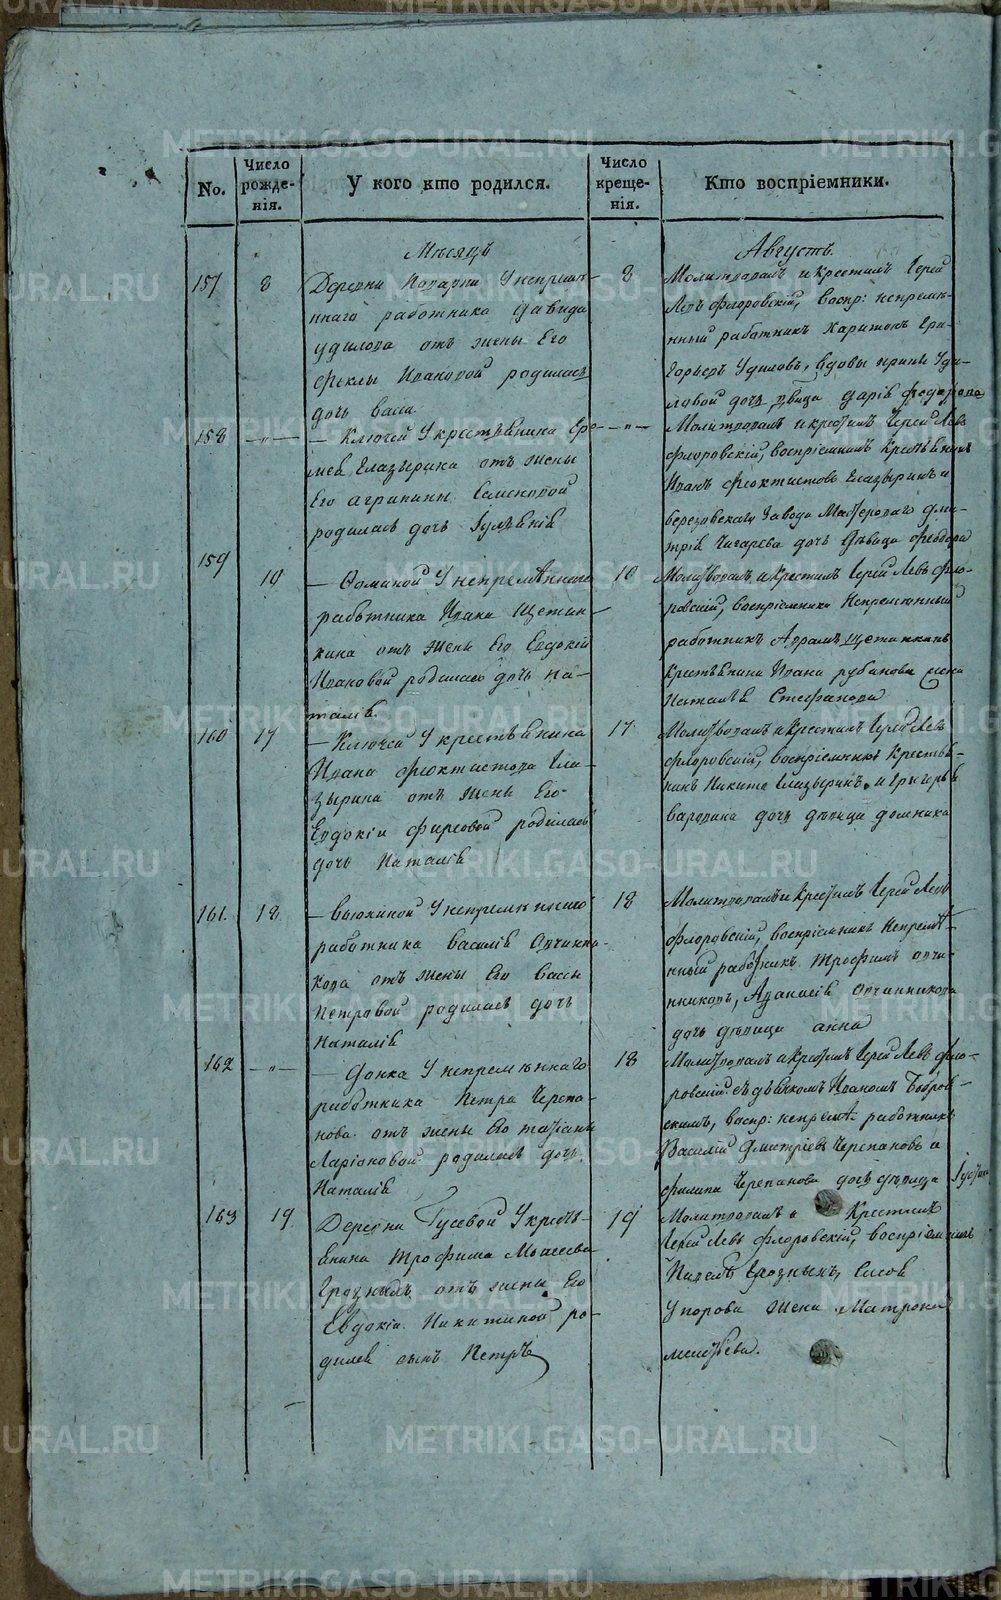 No.
Число рожденія.
У кого кто родился.
Число крещенія.
Кто воспріемники.
Мѣсяцъ
Августъ.
157
8
Деревни У непремѣ-
ннаго работника Давида
Удилова отъ жены Его
Феклы Ивановой родилась
дочь Васса
8
Молитвовалъ и крестилъ Іерей
Левъ Флоровскій, воспр: непремѣ-
нный работникъ Харитонъ Гри-
горьевъ Удиловъ, вдовы Ирины Уди-
ловой дочь дѣвица Дарія Федорова
158
—„—
— Ключей У крестьянина Ере-
мея Глазырина отъ жены
Его Агрипины Семеновой
родилась дочь Іуліанія
—„—
Молитвовалъ и крестилъ Іерей Левъ
Флоровскій, воспріемники Крестьянинъ
Иванъ Феоктистовъ Глазыринъ и
Березовскаго Завода Мастероваго Дми-
трія Чигарева дочь дѣвица Феодора
159
10
— Фоминой У непремѣннаго
работника Ивана Щетин-
кина отъ жены Его Евдокіи
Ивановой родилась дочь На-
талія
10
Молитвовалъ и Крестилъ Іерей Левъ Фло-
ровскій, воспріемники Непремѣнный
работникъ Аврамъ Щетинкинъ
Крестьянина Ивана Рубанова жена
Наталія Стефанова
160
17
— Ключей У крестьянина
Ивана Феоктистова Гла-
зырина отъ жены Его
Евдокіи Фирсовой родилась
дочь Наталія
17
Молитвовалъ и Крестилъ Іерей Левъ
Флоровскій, воспріемники Крестья-
нинъ Никита Глазыринъ и Григорья
дочь дѣвица Домника
161.
18
— Вьюхиной У непремѣннаго
работника Василія Овчинни-
кова отъ жены Его Вассы
Петровой родилась дочь
Наталія
18
Молитвовалъ и Крестилъ Іерей Левъ
Флоровскій, воспріемникъ Непремѣ-
нный работникъ Трофимъ Овчи-
нниковъ, Афанасія Овчинникова
дочь дѣвица Анна
162
—„—
— Фомка У непремѣннаго
работника Петра Черепа-
нова отъ жены Его Татіаны
Ларіоновой родилась дочь
Наталія
18
Молитвовалъ и Крестилъ Іерей Левъ Фло-
ровскій съ дьячкомъ Иваномъ Бобров-
скимъ, воспр: непремѣ: работникъ
Василій Дмитріевъ Черепановъ и
Филипа Черепанова дочь дѣвица
163
19
Деревни Гусевой У кресть-
янина Трофима Моисеева
Грозныхъ отъ жены Его
Евдокіи Никитиной ро-
дился сынъ Петръ
19
Молитвовалъ и Крестилъ
Іерей Левъ Флоровскій, воспріемникъ
Грозныхъ,
Упорова жена Матрона
METRIKI.GASO-URAL.RU